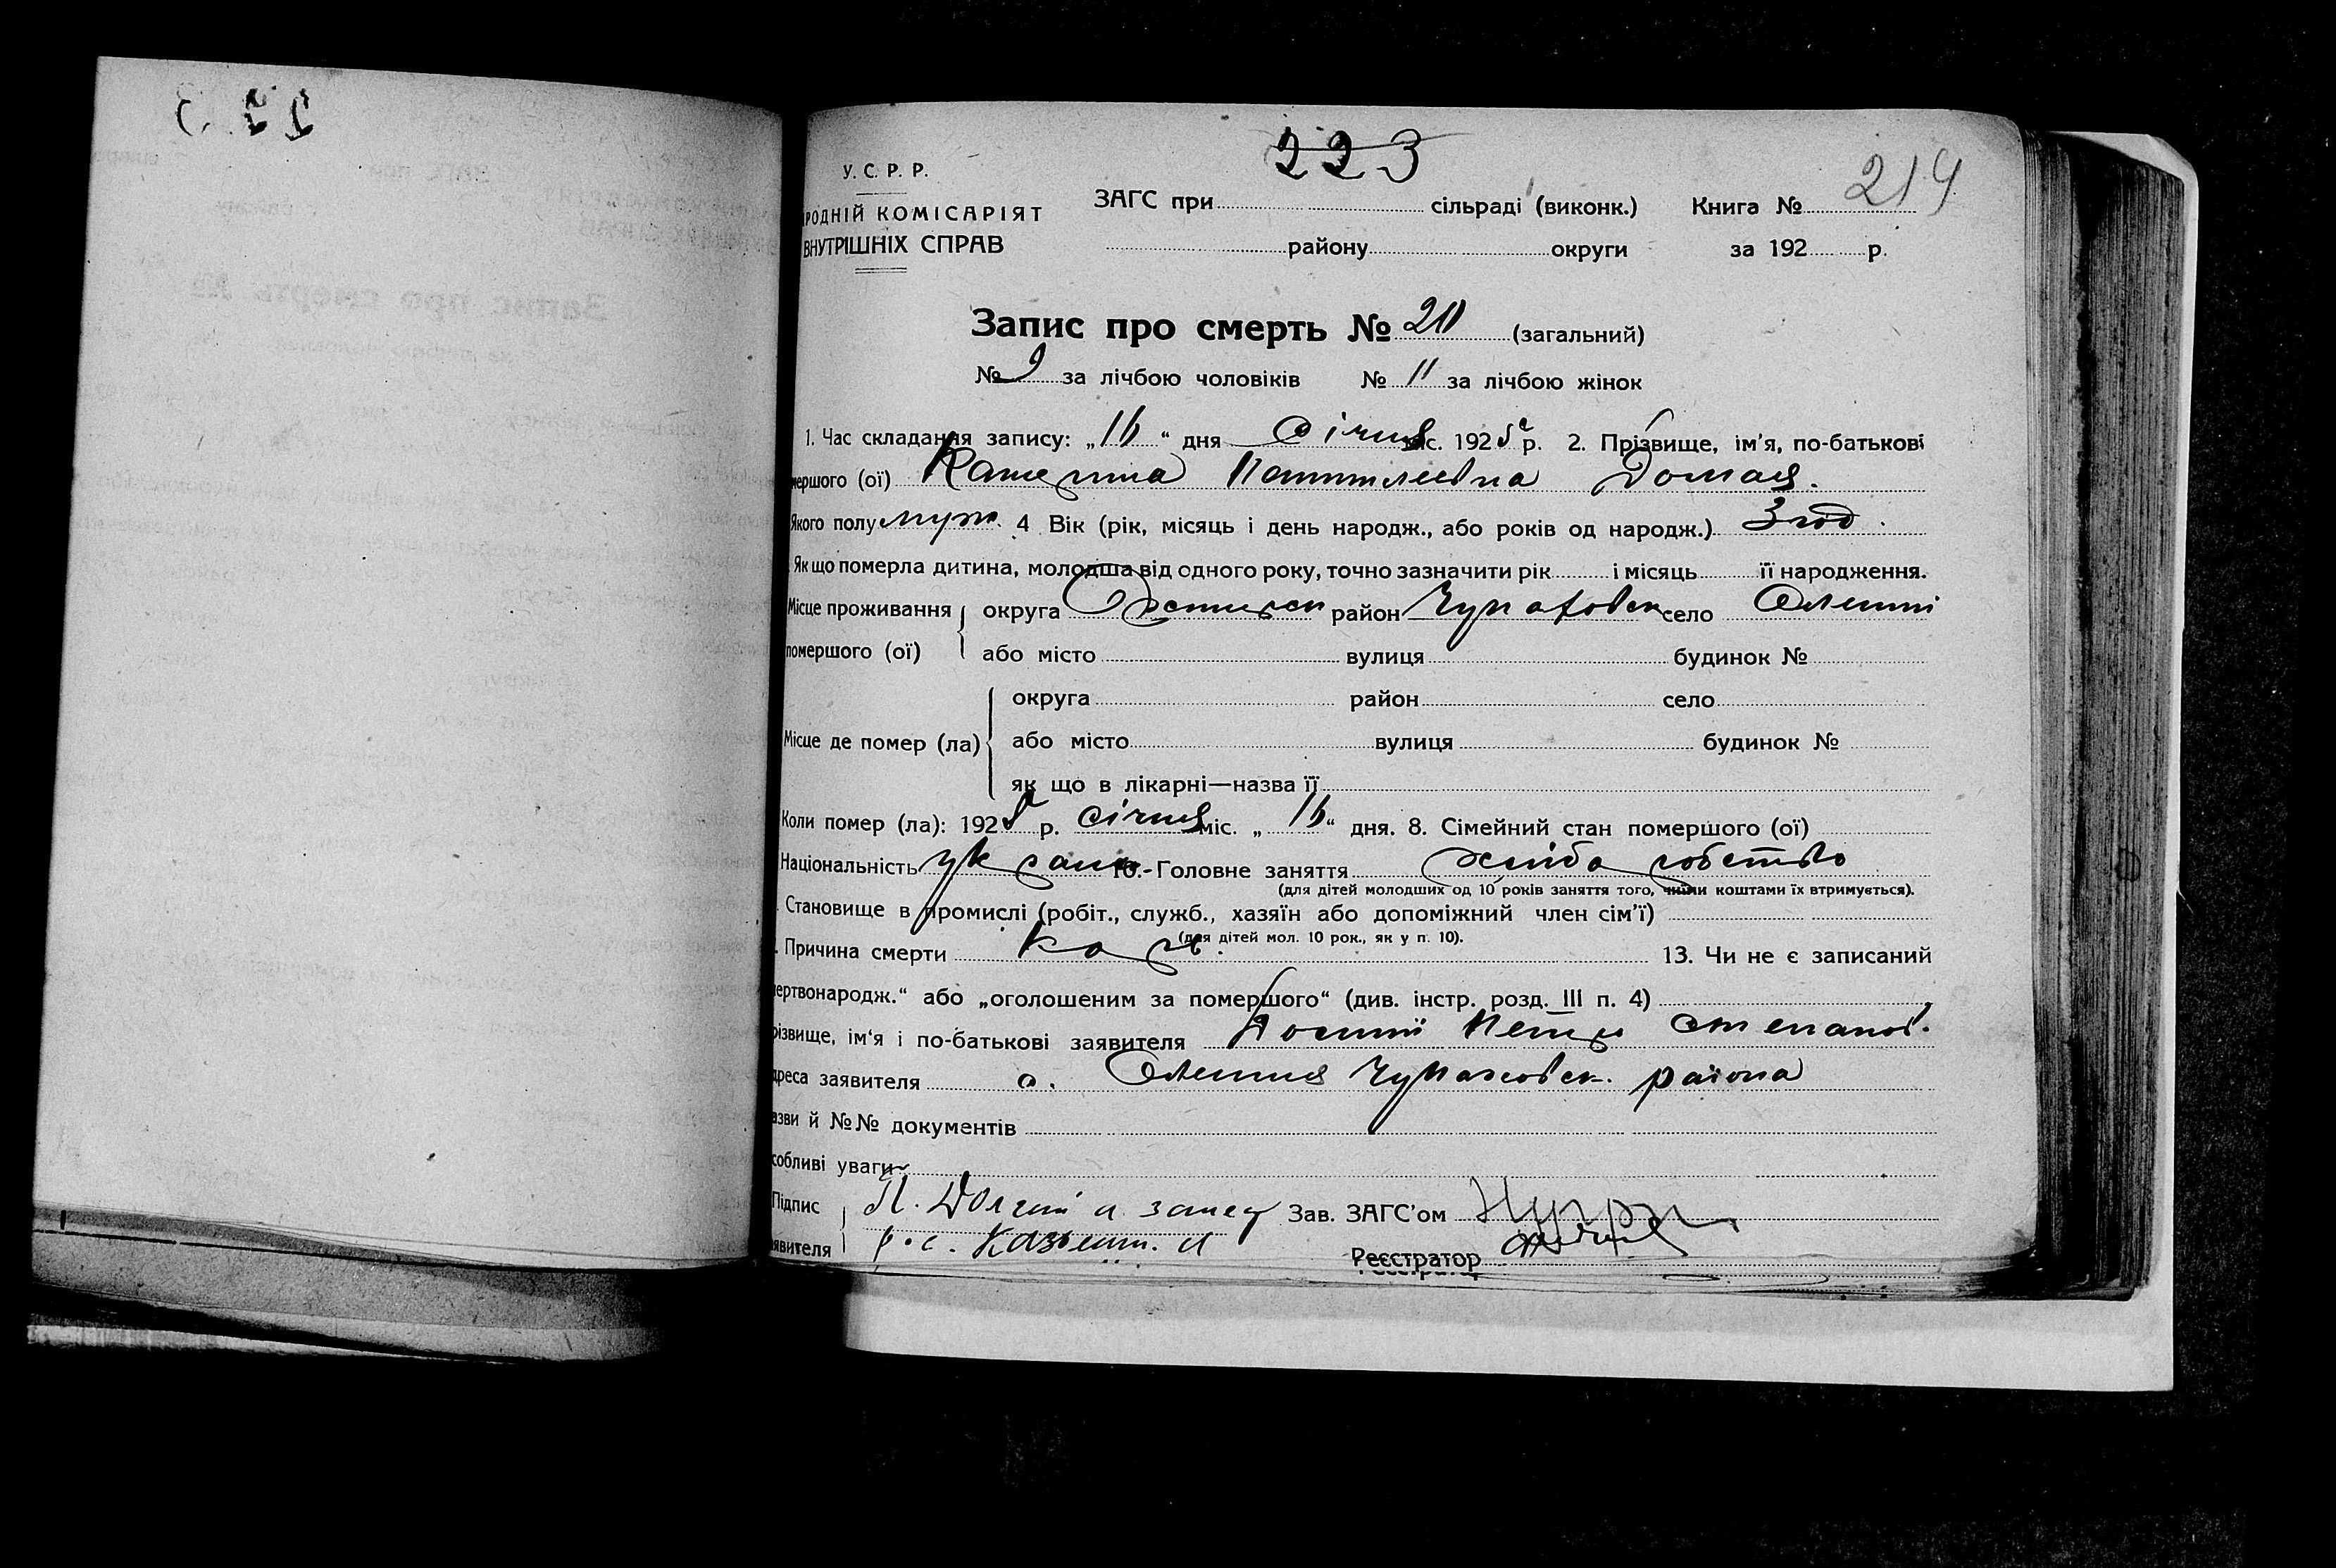 223
214
У. С. Р. Р.
РОДНІЙ КОМІСАРІЯТ
ВНУТРІШНІХ СПРАВ
ЗАГС при сільраді (виконк.) Книга №
району округи за 192 р.
Запис про смерть № (загальний)
№ 9 за лічбою чоловіків № 11 за лічбою жінок
1. Час складання запису: „16“ дня Січня міс. 1925 р. 2. Прізвище, ім'я, по-батькові
мершого (ої) Катерина
Якого полу муж. 4 Вік (рік, місяць і день народж., або років од народж.) 3 год.
Як що померла дитина, молодша від одного року, точно зазначити рік і місяць її народження.
Місце проживання округа район село
помершого (ої) або місто вулиця будинок №
округа район село
Місце де помер (ла) або місто вулиця будинок №
як що в лікарні—назва її
Коли помер (ла): 1925 р. січня міс. „16“ дня. 8. Сімейний стан помершого (ої)
Національність украин 10.-Головне заняття хліборобство
(для дітей молодших од 10 років заняття того, чиїми коштами їх втримується).
Становище в промислі (робіт., служб., хазяїн або допоміжний член сім'ї)
(для дітей мол. 10 рок., як у п. 10).
. Причина смерти кор. 13. Чи не є записаний
ертвонародж.“ або „оголошеним за помершого“ (див. інстр. розд. III п. 4)
різвище, ім'я і по-батькові заявителя Петро Степанов.
дреса заявителя с. района
азви й №№ документів
собливі уваги
Підпис П. а за нег Зав. ЗАГС'ом
явителя р.с. Реєстратор